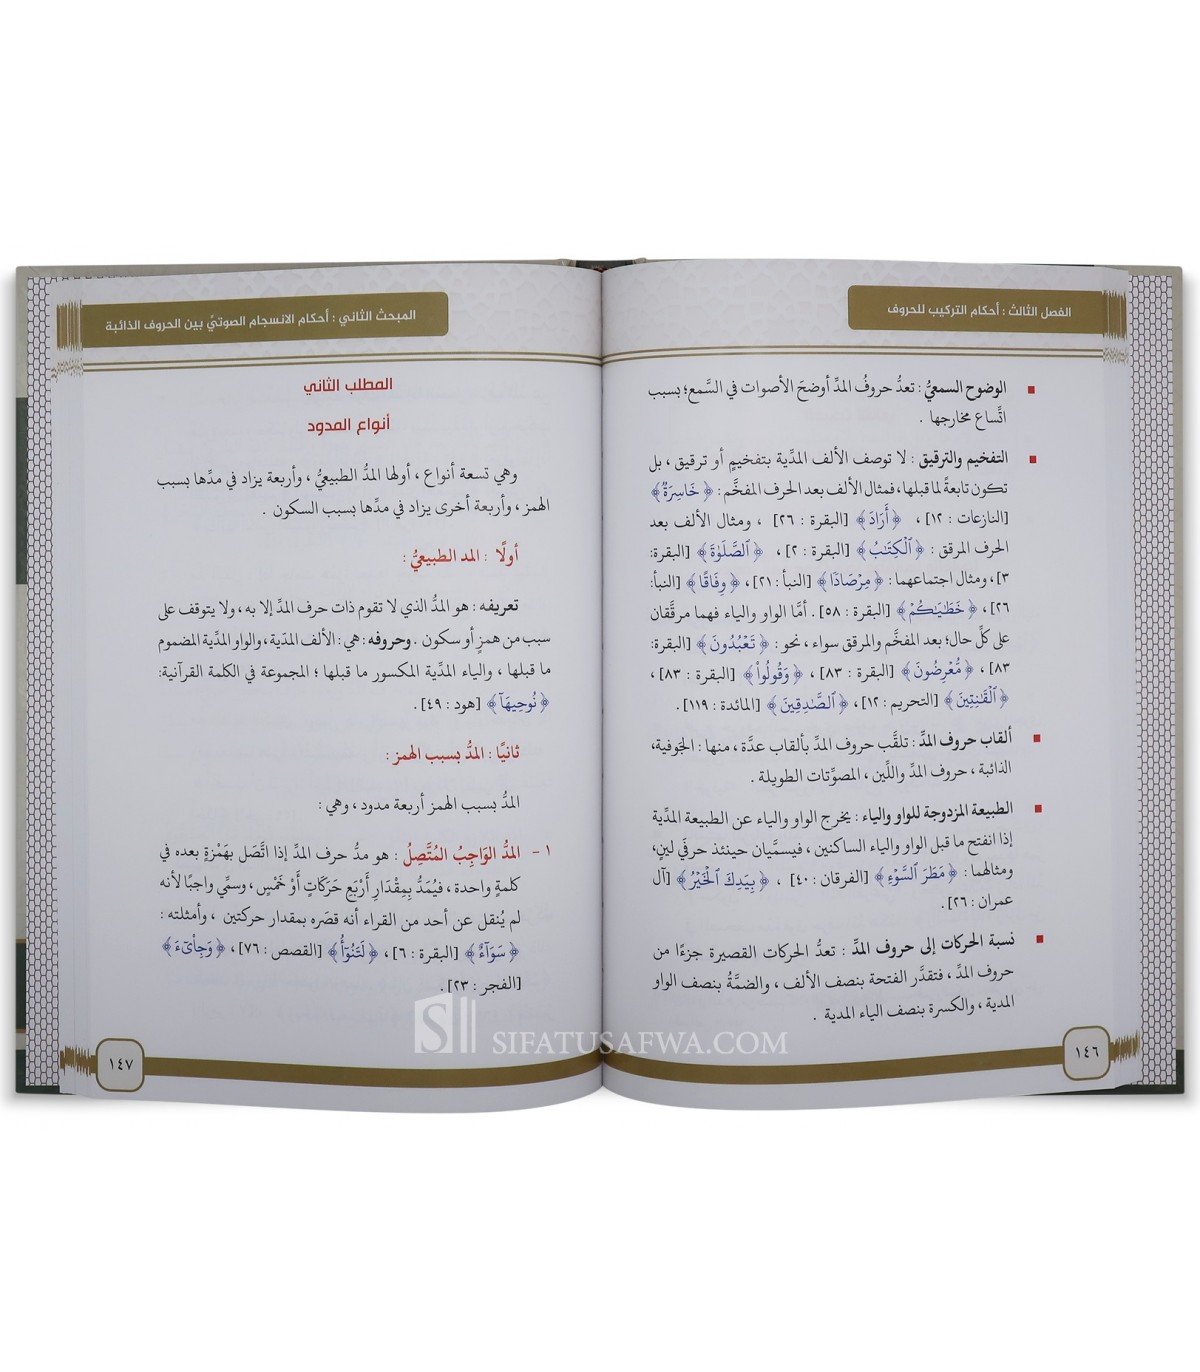 الفصل الثالث : أحكام التركيب للحروف
الوضوح السمعيُّ : تعدُّ حروفُ المدِّ أوضحَ الأصوات في السَّمع؛ بسبب
اتِّساع مخارجها .
التفخيم والترقيق : لا توصف الألف المدِّية بتفخيمٍ أو ترقيق ، بل
تكون تابعةً لما قبلها، فمثال الألف بعد الحرف المفخَّم : ﴿ خَاسِرَةٌ ﴾
[النازعات : ١٢] ، ﴿ أَرَادَ ﴾ [البقرة : ٢٦] ، ومثال الألف بعد
الحرف المرقق : ﴿ ٱلْكِتَٰبُ ﴾ [البقرة : ٢] ، ﴿ ٱلصَّلَوٰةَ ﴾ [البقرة:
٣]، ومثال اجتماعهما : ﴿ مِرْصَادًا ﴾ [النبأ : ٢١]، ﴿ وِفَاقًا ﴾ [النبأ:
٢٦]، ﴿ خَطَٰيَٰكُمْ ﴾ [البقرة : ٥٨] . أمَّا الواو والياء فهما مرقَّقان
على كلِّ حال؛ بعد المفخَّم والمرقق سواء ، نحو : ﴿ تَعْبُدُونَ ﴾ [البقرة:
٨٣] ، ﴿ مُّعْرِضُونَ ﴾ [البقرة : ٨٣] ، ﴿ وَقُولُوا۟ ﴾ [البقرة : ٨٣] ،
﴿ ٱلْقَٰنِتِينَ ﴾ [التحريم : ١٢]، ﴿ ٱلصَّٰدِقِينَ ﴾ [المائدة : ١١٩] .
ألقاب حروف المدِّ : تلقَّب حروف المدِّ بألقاب عدَّة ، منها : الجَوفية،
الذائبة ، حروف المدِّ واللِّين ، المصوِّتات الطويلة .
الطبيعة المزدوجة للواو والياء : يخرج الواو والياء عن الطبيعة المدِّية
إذا انفتح ما قبل الواو والياء الساكنين ، فيسمَّيان حينئذ حرفَي لينٍ،
ومثالهما : ﴿ مَطَرَ ٱلسَّوْءِ ﴾ [الفرقان : ٤٠] ، ﴿ بِيَدِكَ ٱلْخَيْرُ ﴾ [آل
عمران : ٢٦] .
نسبة الحركات إلى حروف المدِّ : تعدُّ الحركات القصيرة جزءًا من
حروف المدِّ ، فتقدَّر الفتحة بنصف الألف ، والضمَّةُ بنصف الواو
المدية ، والكسرة بنصف الياء المدية .
١٤٦
المبحث الثاني : أحكام الانسجام الصوتيِّ بين الحروف الذائبة
المطلب الثاني
أنواع المدود
وهي تسعة أنواع ، أولها المدُّ الطبيعيُّ ، وأربعة يزاد في مدِّها بسبب
الهمز ، وأربعة أخرى يزاد في مدِّها بسبب السكون .
أولًا : المد الطبيعيُّ :
تعريفه : هو المدُّ الذي لا تقوم ذات حرف المدِّ إلا به ، ولا يتوقف على
سبب من همزٍ أو سكون . وحروفه : هي: الألف المدّية، والواو المدِّية المضموم
ما قبلها ، والياء المدِّية المكسور ما قبلها ؛ المجموعة في الكلمة القرآنية:
﴿ نُوحِيهَآ ﴾ [هود : ٤٩] .
ثانيًا : المدُّ بسبب الهمز :
المدُّ بسبب الهمز أربعة مدود ، وهي :
١ - المدُّ الوَاجِبُ المُتَّصِلُ : هو مدُّ حرف المدِّ إذا اتَّصل بهَمْزةٍ بعده في
كلمةٍ واحدة ، فيُمَدُّ بِمِقْدَارِ أَرْبَعِ حَرَكَاتٍ أَوْ خَمْسٍ ، وسمِّي واجبًا لأنه
لم يُنقل عن أحد من القراء أنه قصَره بمقدار حركتين ، وأمثلته :
﴿ سَوَآءٌ ﴾ [البقرة : ٦] ، ﴿ لَتَنُوٓأُ ﴾ [القصص : ٧٦] ، ﴿ وَجِا۟ىٓءَ ﴾
[الفجر : ٢٣] .
١٤٧
SIFATUSAFWA.COM